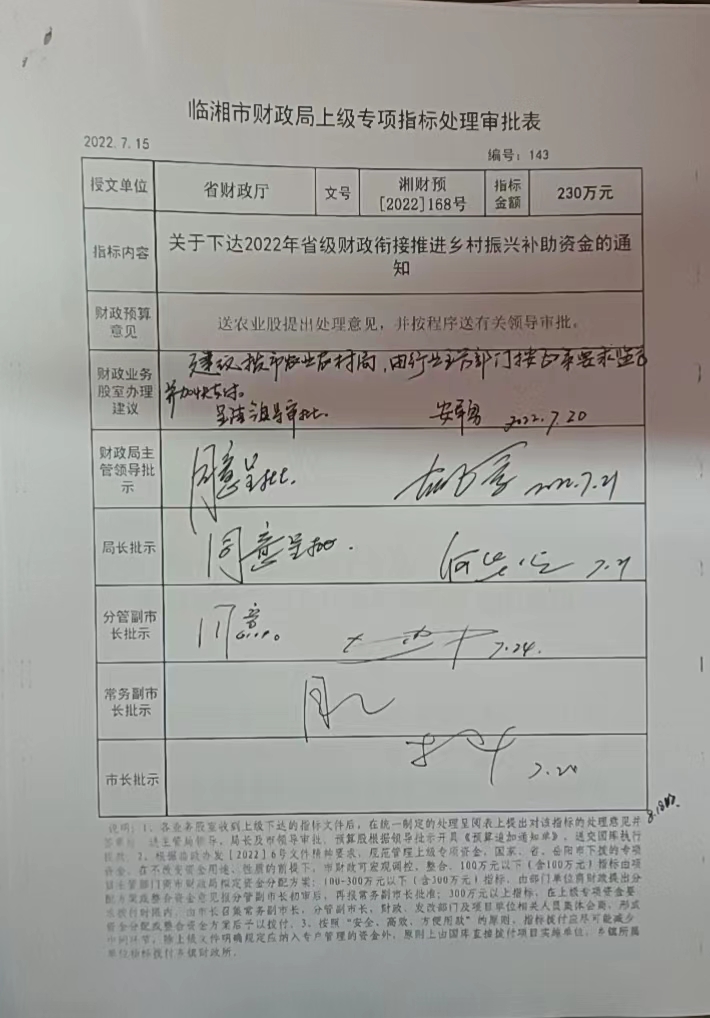 临湘市财政局上级专项指标处理审批表
2022.7.15
编号：143
授文单位 省财政厅 文号 湘财预[2022]168号 指标金额 230万元
指标内容 关于下达2022年省级财政衔接推进乡村振兴补助资金的通知
财政预算意见 送农业股提出处理意见，并按程序送有关领导审批。
财政业务股室办理建议 建议拨市农业农村局，由行业主管部门按政策要求监管
并加快支付。
呈请领导审批。 2022.7.20
财政局主管领导批示 同意呈批。 2022.7.21
局长批示 同意呈批. 7.21
分管副市长批示 同意。 7.24.
常务副市长批示 同意
市长批示
说明：1、各业务股室收到上级下达的指标文件后，在统一制定的处理呈阅表上提出对该指标的处理意见并
签章后，送主管局领导，局长及市领导审批，预算股根据领导批示开具《预算追加通知单》，送交国库执行
拨款。2、根据临政办发[2022]6号文件精神要求，规范管理上级专项资金，国家、省、岳阳市下拨的专项
资金，在不改变资金用途、性质的前提下，市财政可宏观调控、整合。100万元以下（含100万元）指标由项
目主管部门商市财政局拟定资金分配方案；100-300万元以下（含300万元）指标，由部门单位商财政提出分
配方案或整合资金意见报分管副市长初审后，再报常务副市长批准；300万元以上指标，在上级专项资金要
求拨付时限内，由市长召集常务副市长，分管副市长、财政、发改部门及项目单位相关人员集体会商，形成
资金分配或整合资金方案后予以拨付。3、按照“安全、高效、方便用款”的原则，指标拨付应尽可能减少
中间环节，除上级文件明确规定应纳入专户管理的资金外，原则上由国库直接拨付项目实施单位，乡镇所属
单位指标拨付乡镇财政所。